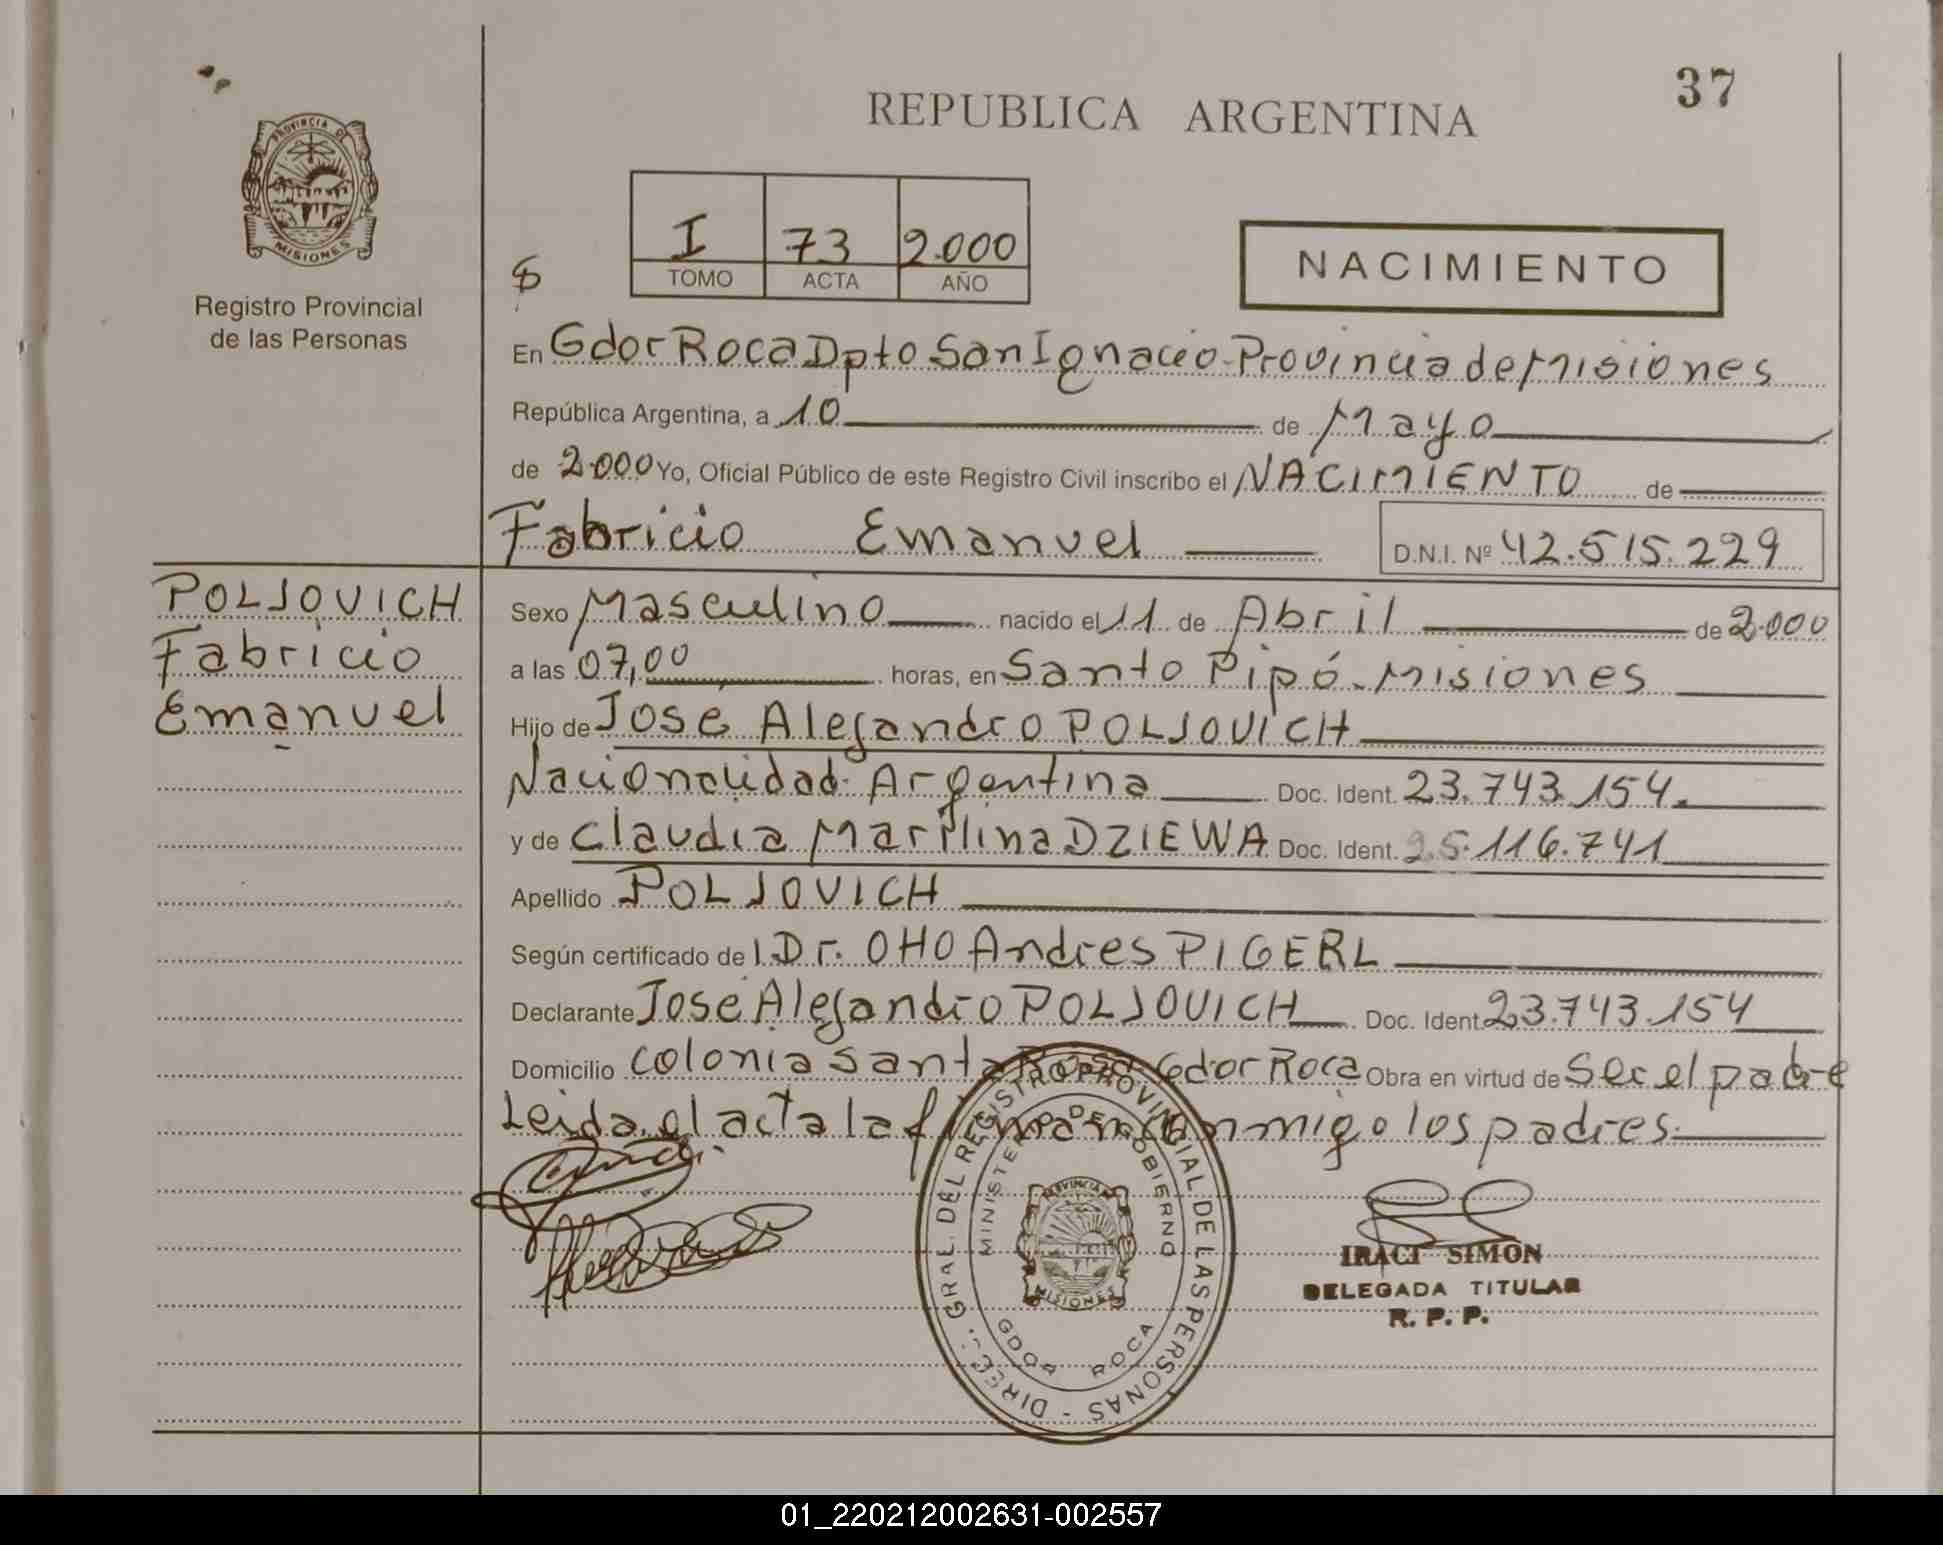 37
REPUBLICA ARGENTINA
PROVINCIA DE
MISIONES
Registro Provincial
de las Personas
I 73 2.000
TOMO ACTA AÑO
NACIMIENTO
En Gdor Roca Dpto San Ignacio - Provincia de Misiones
República Argentina, a 10 de Mayo
de 2.000 Yo, Oficial Público de este Registro Civil inscribo el NACIMIENTO de
Fabricio Emanuel D.N.I. Nº 42.515.229
POLJOVICH
Fabricio
Emanuel
Sexo Masculino nacido el 11 de Abril de 2.000
a las 07,00 horas, en Santo Pipó - Misiones
Hijo de José Alejandro POLJOVICH
Nacionalidad Argentina Doc. Ident. 23.743.154.
y de Claudia Marilina DZIEWA Doc. Ident. 25.116.741
Apellido POLJOVICH
Según certificado del Dr. Otto Andres PIGERL
Declarante José Alejandro POLJOVICH Doc. Ident. 23.743.154
Domicilio Colonia Santa Rosa - Gdor Roca Obra en virtud de Ser el padre
Leida el acta la firman conmigo los padres.
DIREC. GRAL. DEL REGISTRO PROVINCIAL DE LAS PERSONAS -
MINISTERIO DE GOBIERNO
PROVINCIA
MISIONES
GDOR ROCA
IRACI SIMON
DELEGADA TITULAR
R. P. P.
01_220212002631-002557